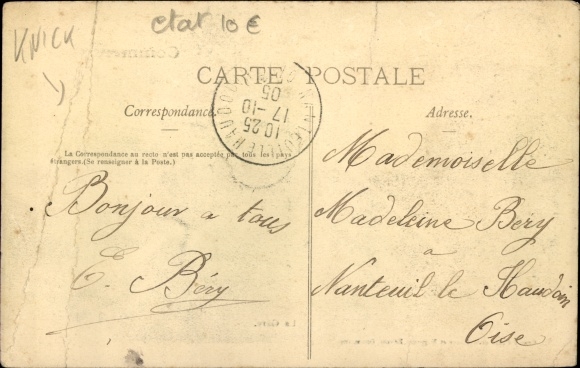 KNICK
etat 10 €
CARTE POSTALE
Correspondance.
La Correspondance au recto n'est pas acceptée par tous les pays
étrangers. (Se renseigner à la Poste.)
Bonjour a tous
E. Béry
Adresse.
Mademoiselle
Madeleine Bery
a
Nanteuil le Haudoin
Oise
NANTEUIL LE HAUDOUIN
10 25
17 -10
05
La Gare.